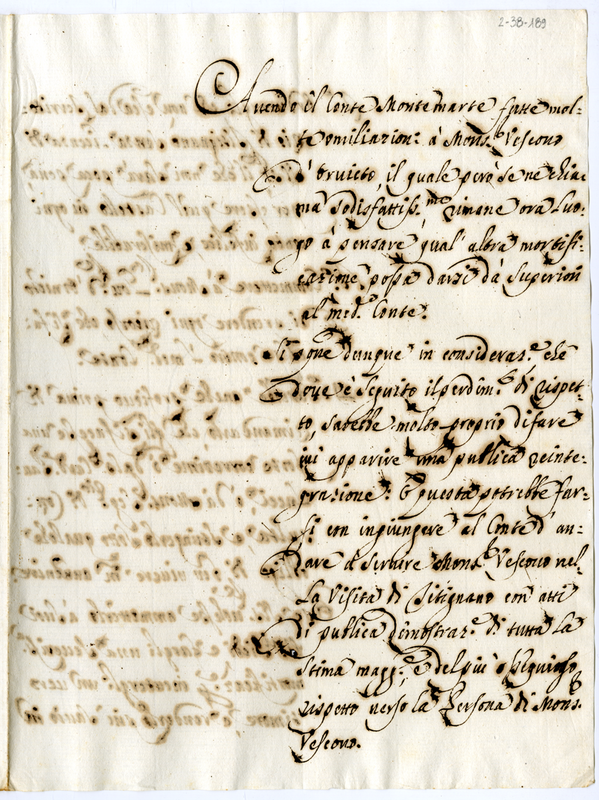 2-38-189
Auendo il Conte Montemarte fatte mol-
te omiliazion: à Mons. Vescouo
d'Oruieto, il quale però se ne chia-
ma sodisfattiss.mo rimane ora luo-
go à pensare qual' altra mortifi-
cazione possa darsi dà Superiori
al med.o Conte.
Si pone dunque in consideraz.e che
doue è seguito il perdim.to di rispet-
to, sarebbe molto proprio di fare
iui apparire una publica reinte-
grazione: E questa potrebbe far-
si con ingiungere al Conte d'an-
dare à seruire Mons.r Vescouo nel-
la Visita di Sitignano con atti
di publica dimostraz.e di tutta la
stima magg.re, e del più ossequioso
rispetto uerso la Persona di Mons.r
Vescouo.